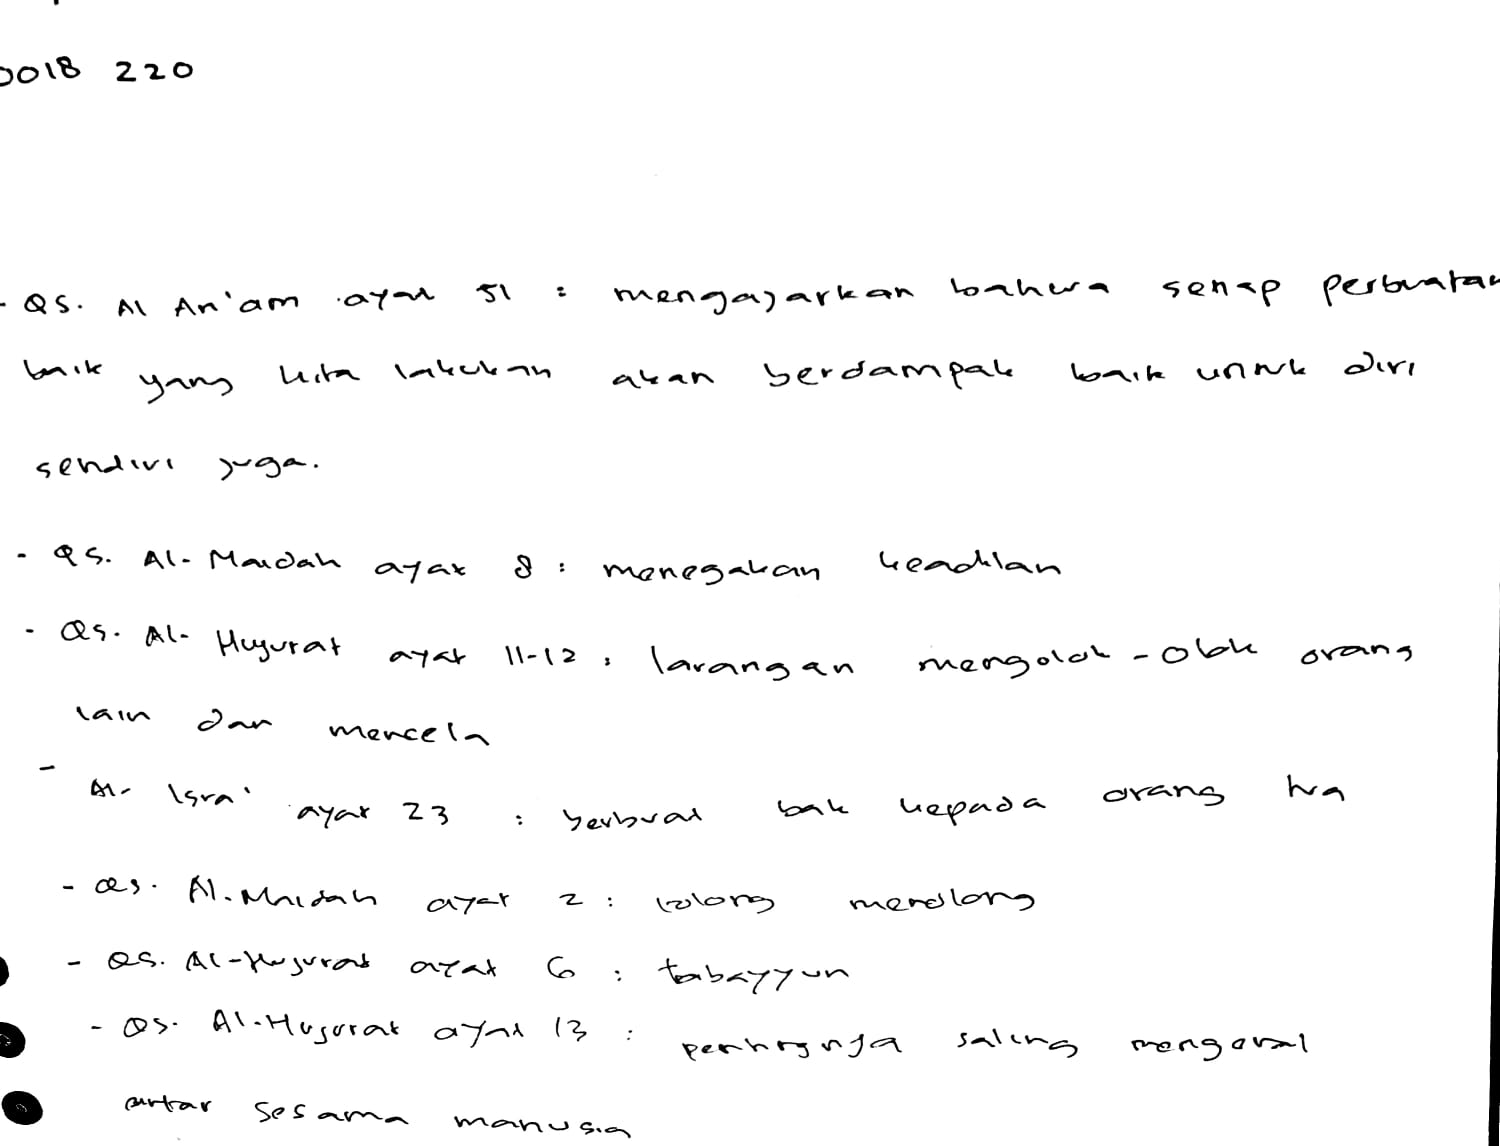 0018 220
- QS. Al An'am ayat 51 : mengajarkan bahwa setiap perbuatan
baik yang kita lakukan akan berdampak baik untuk diri
sendiri juga.
- QS. Al-Maidah ayat 8 : menegakan keadilan
- QS. Al-Hujurat ayat 11-12 : larangan mengolok-olok orang
lain dan mencela
- Al-Isra' ayat 23 : berbuat baik kepada orang tua
- QS. Al-Maidah ayat 2 : tolong menolong
- QS. Al-Hujurat ayat 6 : tabayyun
- QS. Al-Hujurat ayat 13 : pentingnya saling mengenal
antar sesama manusia